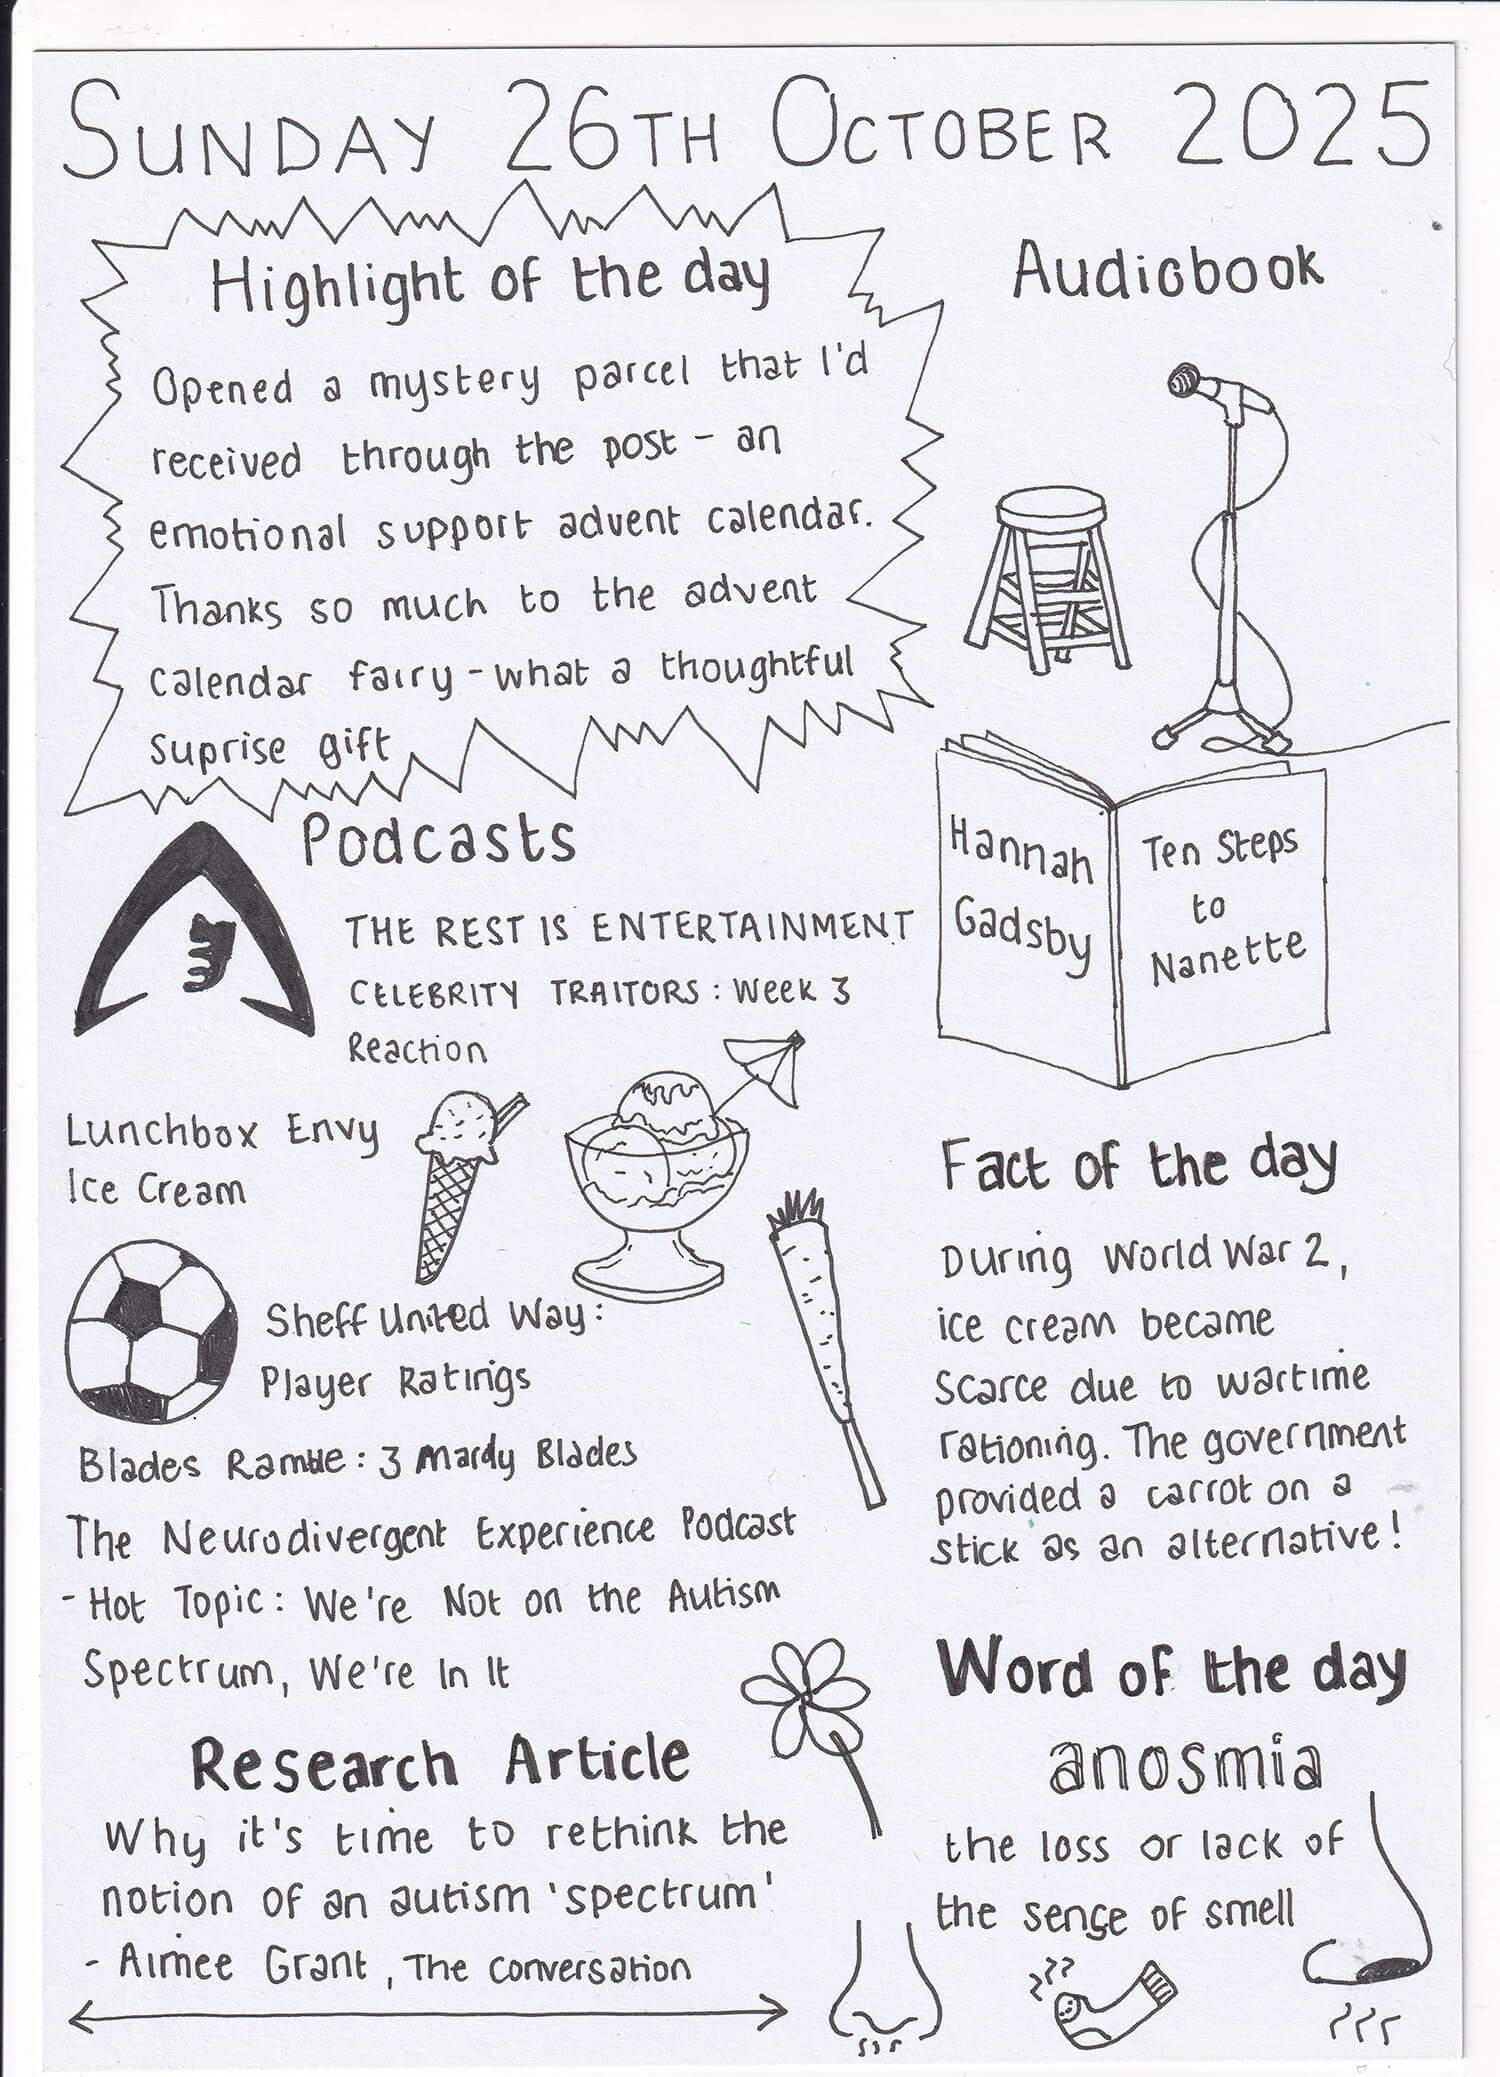 SUNDAY 26TH OCTOBER 2025
Highlight of the day
Opened a mystery parcel that I'd
received through the post - an
emotional support advent calendar.
Thanks so much to the advent
calendar fairy - what a thoughtful
suprise gift
Audiobook
Hannah
Gadsby
Ten Steps
to
Nanette
Podcasts
THE REST IS ENTERTAINMENT
CELEBRITY TRAITORS: Week 3
Reaction
Lunchbox Envy
Ice Cream
Sheff United Way:
Player Ratings
Blades Ramble: 3 Mardy Blades
The Neurodivergent Experience Podcast
- Hot Topic: We're Not on the Autism
Spectrum, We're In It
Fact of the day
During World War 2,
ice cream became
scarce due to wartime
rationing. The government
provided a carrot on a
stick as an alternative!
Research Article
Why it's time to rethink the
notion of an autism 'spectrum'
- Aimee Grant, The Conversation
Word of the day
anosmia
the loss or lack of
the sense of smell